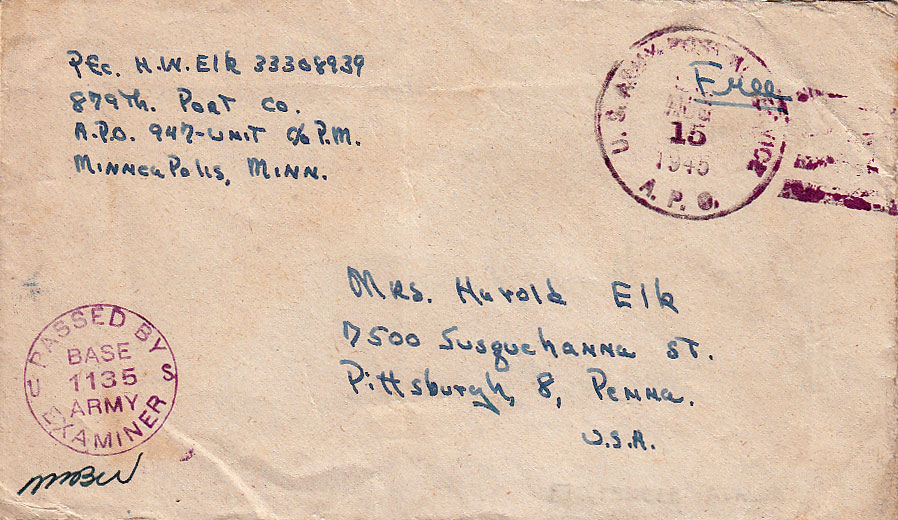 Pfc. H.W. Elk 33308939
879th. Port Co.
A.P.O. 947-Unit c/o P.M.
Minneapolis, Minn.
Free
U.S. ARMY POSTAL SERVICE
AUG
15
1945
A.P.O.
Mrs. Harold Elk
7500 Susquehanna St.
Pittsburgh, 8, Penna.
U.S.A.
PASSED BY
BASE
U 1135 S
ARMY
EXAMINER